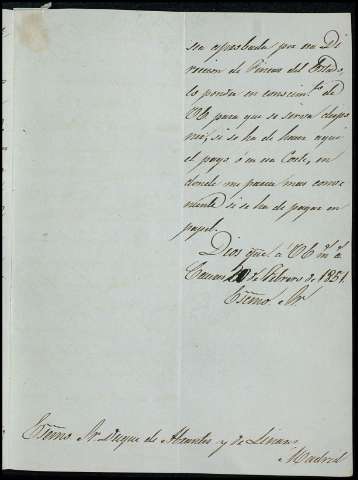 sea aprobada por esa Di
reccion de Fincas del Estado,
lo pondra en conocim.to de
VE para que se sirva dispo
ner, si se ha de hacer aqui
el pago ó en esa Corte, en
donde me parece mas conve
niente si se ha de pagar en
papel.
Dios gue. á VE m.s a.s
20 de Febrero de 1851.
Escmo. Sr.
Escmo Sr Duque de Abrantes y de Linares
Madrid